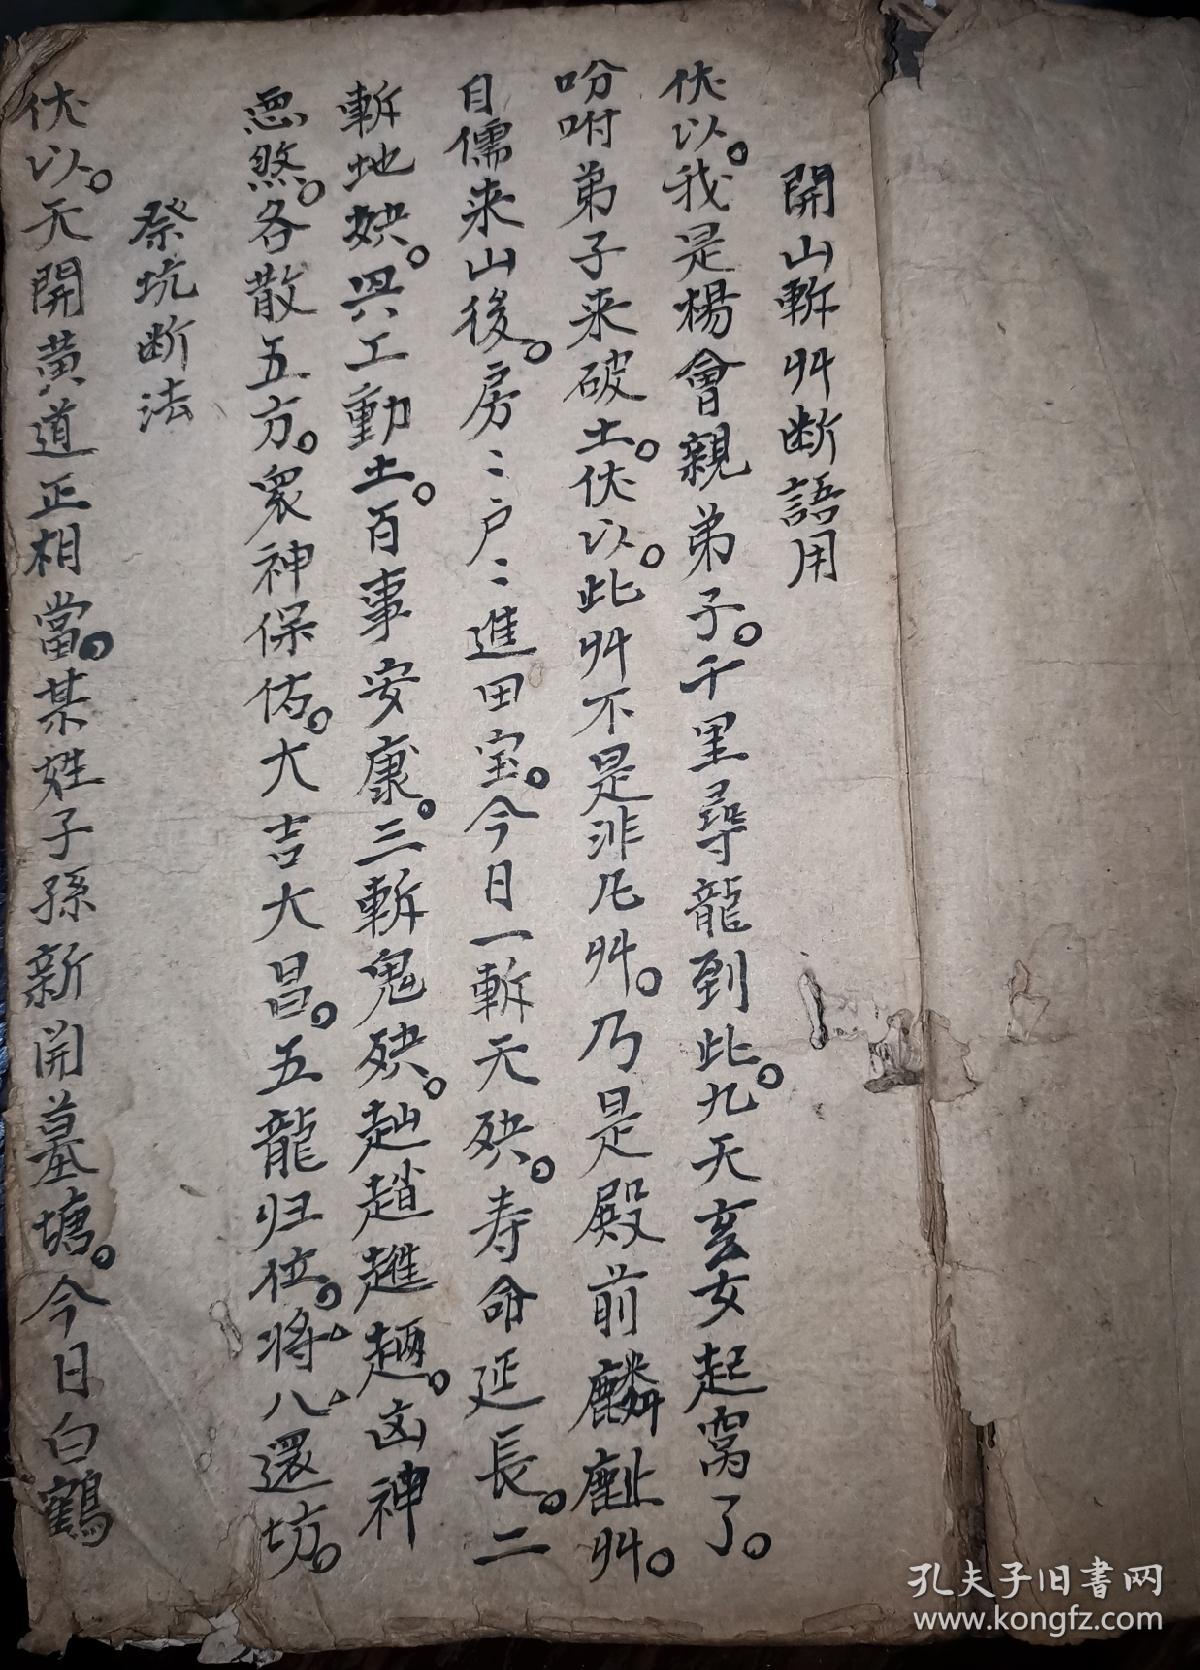 開山斬艸断語用
伏以。我是楊會親弟子。千里尋龍到此。九天玄女起窩了。
吩咐弟子来破土。伏以。此艸不是非凡艸。乃是殿前麟麉艸。
自儒来山後。房〻户〻進田宝。今日一斬天殃。寿命延長。二
斬地殃。興工動土。百事安康。三斬鬼殃。赸趙趡。凶神
惡煞。各散五方。衆神保佑。大吉大昌。五龍归位。將八還坊。
祭坑断法
伏以。天開黄道正相當。某姓子孫新開墓塘。今日白鶴
孔夫子旧書网
www.kongfz.com